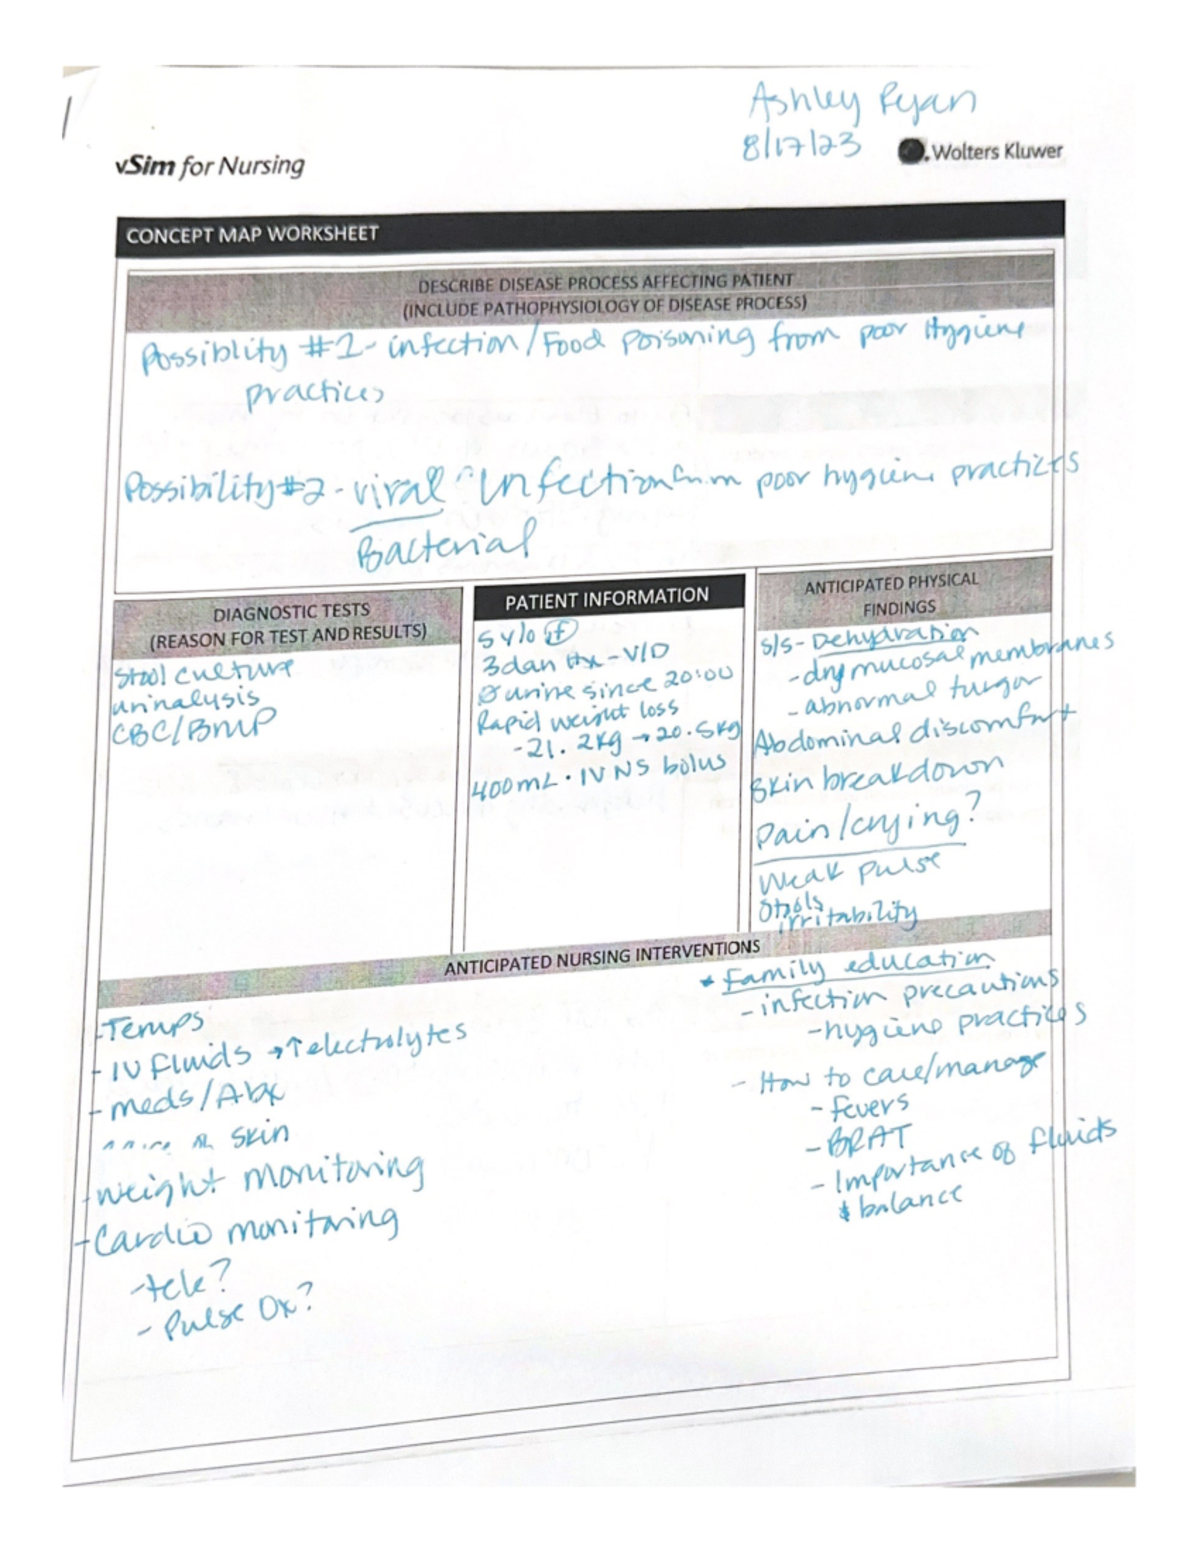 Ashley Ryan
8/17/23
vSim for Nursing
Wolters Kluwer
CONCEPT MAP WORKSHEET
DESCRIBE DISEASE PROCESS AFFECTING PATIENT
(INCLUDE PATHOPHYSIOLOGY OF DISEASE PROCESS)
Possiblity #1 - infection/Food Poisoning from poor Hygiene
practices
Possibility #2 - viral infection from poor hygiene practices
Bacterial
DIAGNOSTIC TESTS
(REASON FOR TEST AND RESULTS)
Stool culture
urinalysis
CBC/BMP
PATIENT INFORMATION
5 y/o f
3 day Hx - V/D
Ø urine since 20:00
Rapid weight loss
- 21.2kg → 20.5kg
400mL · IV NS bolus
ANTICIPATED PHYSICAL
FINDINGS
S/S - Dehydration
- dry mucosal membranes
- abnormal turgor
Abdominal discomfort
Skin breakdown
Pain/crying?
Weak pulse
Stools
irritability
ANTICIPATED NURSING INTERVENTIONS
- Temps
- IV fluids → ↑ electrolytes
- meds/Abx
skin
- weight monitoring
- Cardio monitoring
- tele?
- Pulse Ox?
* Family education
- infection precautions
- hygiene practices
- How to care/manage
- fevers
- BRAT
- Importance of fluids
& balance